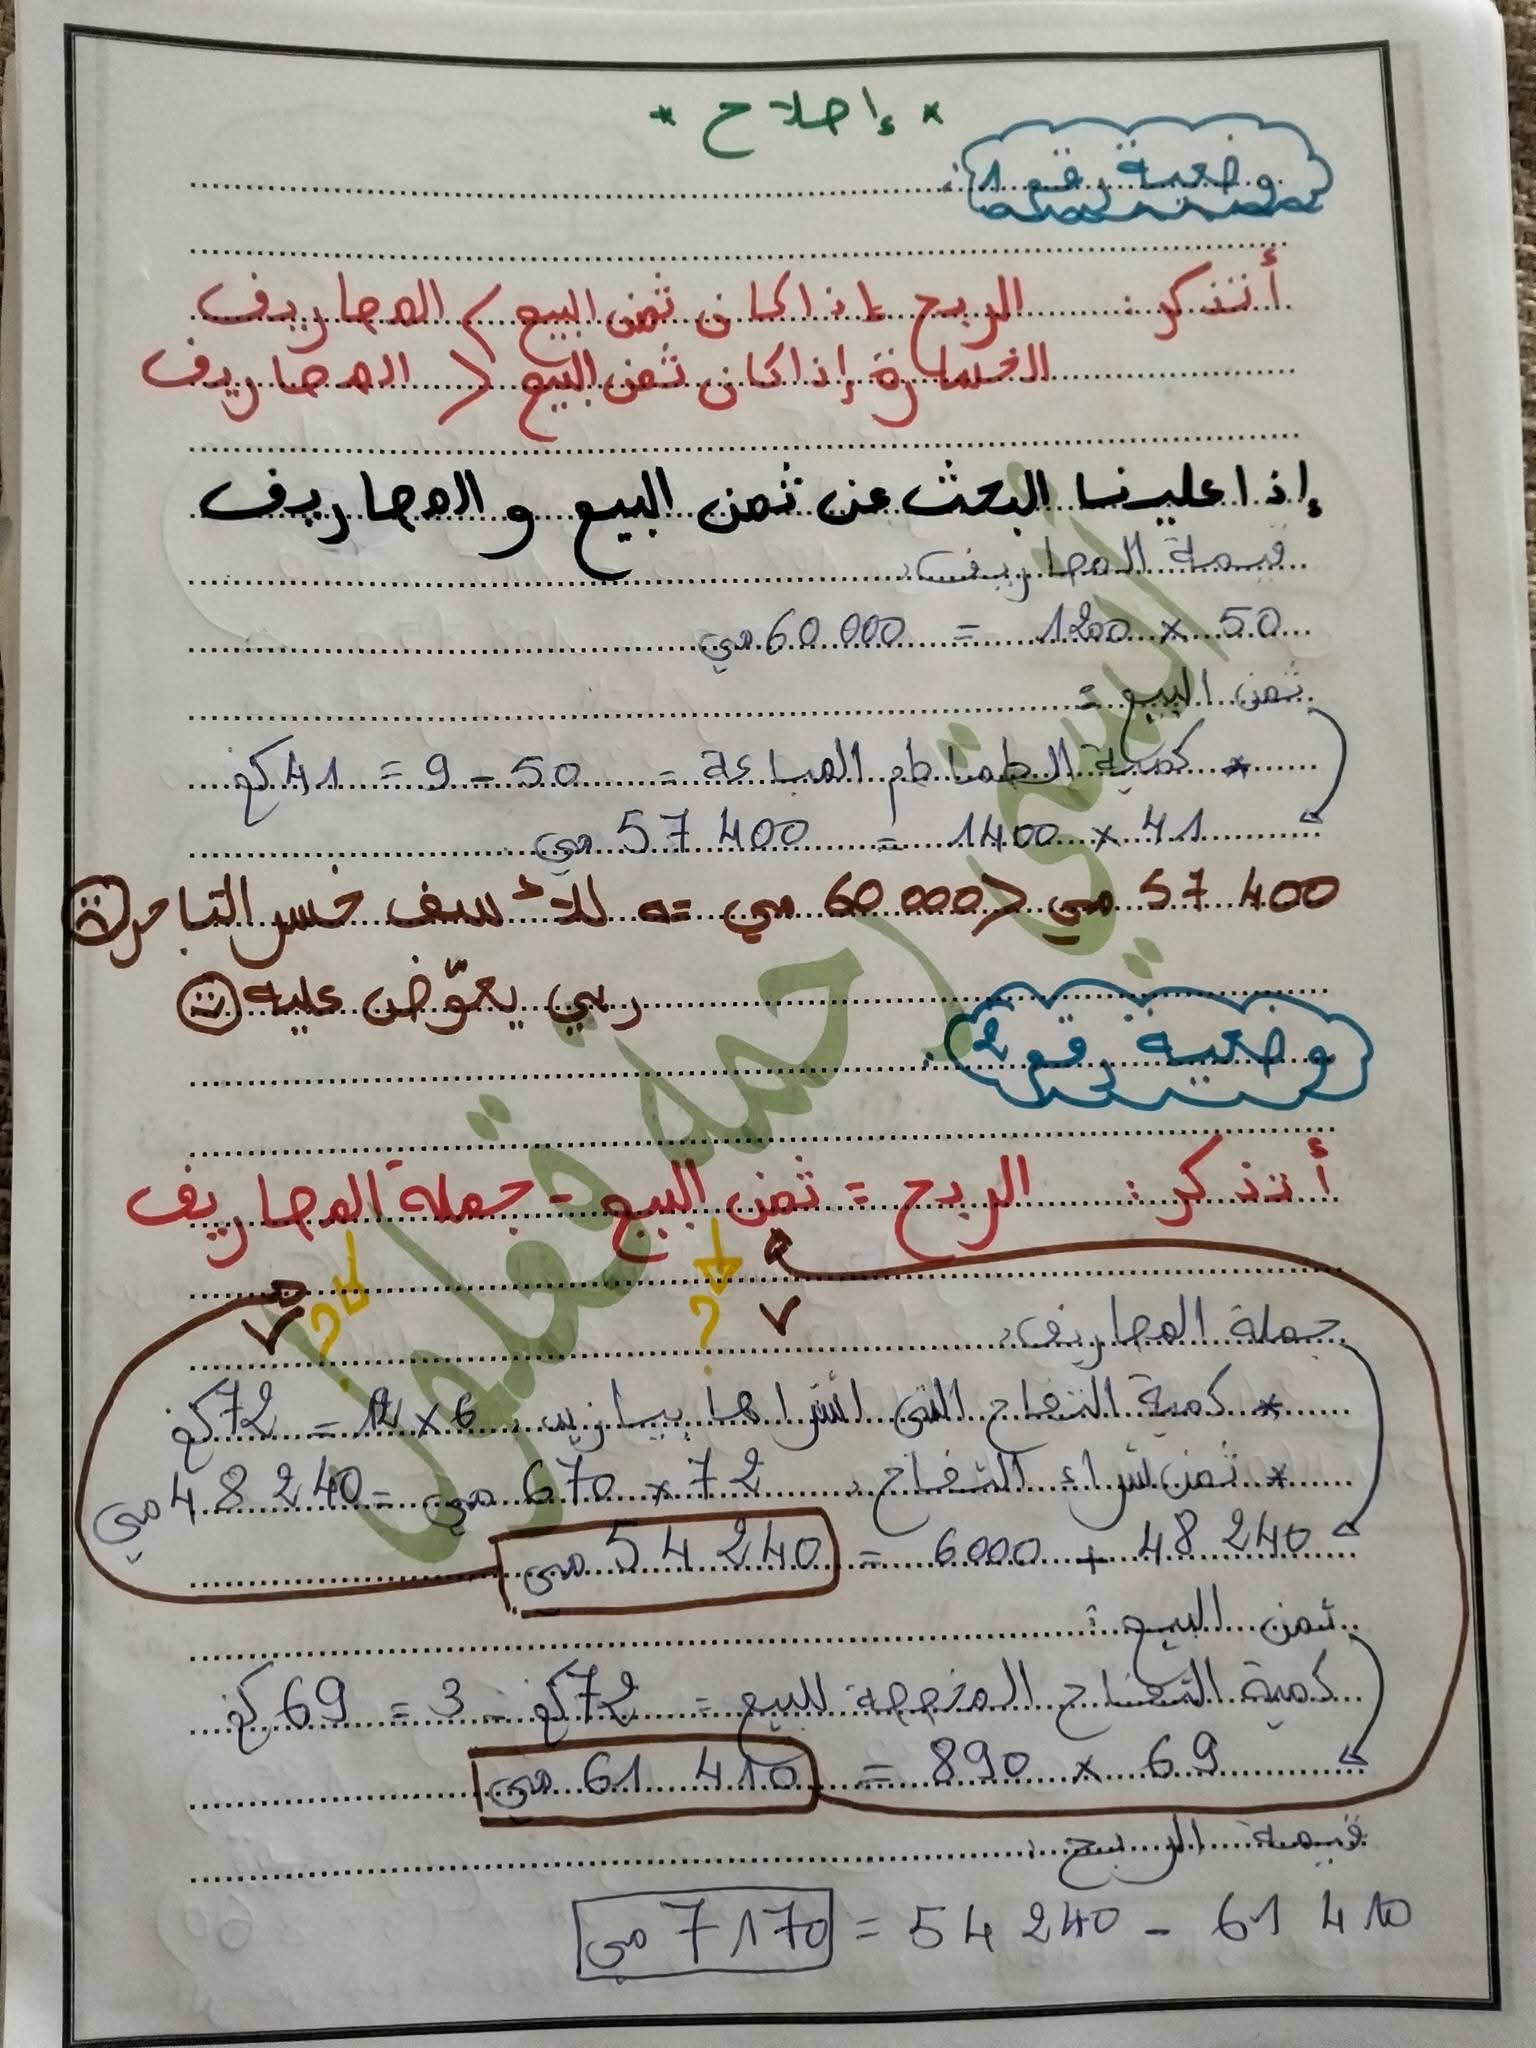 * إصلاح *
وضعية رقم 1:
أتذكر: الربح إذا كان ثمن البيع > المصاريف
الخسارة إذا كان ثمن البيع < المصاريف
إذا علينا البحث عن ثمن البيع و المصاريف
قيمة المصاريف:
50 × 1200 = 60 000 مي
ثمن البيع =
* كمية الطماطم المباعة = 50 - 9 = 41 كغ
41 × 1400 = 57 400 مي
57 400 مي < 60 000 مي => للأسف خسر التاجر
ربي يعوّض عليه
وضعية رقم 2:
أتذكر: الربح = ثمن البيع - جملة المصاريف
? ?
جملة المصاريف:
* كمية التفاح التي اشتراها بيازيد: 6 × 12 = 72 كغ
* ثمن شراء التفاح: 72 × 670 مي = 48 240 مي
48 240 + 6000 = 54 240 مي
ثمن البيع:
كمية التفاح المخصصة للبيع = 72 كغ - 3 = 69 كغ
69 × 890 = 61 410 مي
قيمة الربح:
61 410 - 54 240 = 7170 مي
سيدي أحمد قعلول